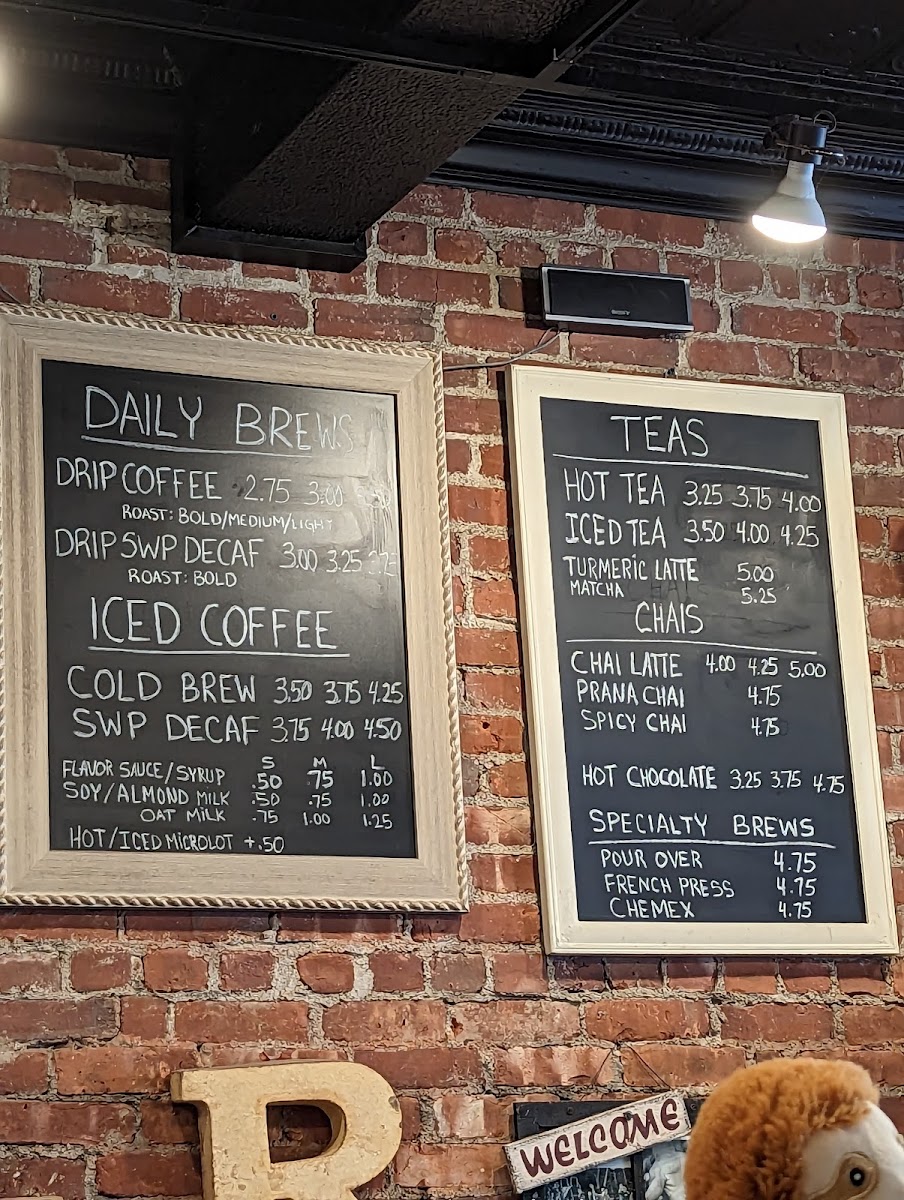 DAILY BREWS
DRIP COFFEE 2.75 3.00
ROAST: BOLD/MEDIUM/LIGHT
DRIP SWP DECAF 3.00 3.25
ROAST: BOLD
ICED COFFEE
COLD BREW 3.50 3.75 4.25
SWP DECAF 3.75 4.00 4.50
S M L
FLAVOR SAUCE/SYRUP .50 .75 1.00
SOY/ALMOND MILK .50 .75 1.00
OAT MILK .75 1.00 1.25
HOT/ICED MICROLOT +.50
SONY
TEAS
HOT TEA 3.25 3.75 4.00
ICED TEA 3.50 4.00 4.25
TURMERIC LATTE 5.00
MATCHA 5.25
CHAIS
CHAI LATTE 4.00 4.25 5.00
PRANA CHAI 4.75
SPICY CHAI 4.75
HOT CHOCOLATE 3.25 3.75 4.75
SPECIALTY BREWS
POUR OVER 4.75
FRENCH PRESS 4.75
CHEMEX 4.75
R
WELCOME